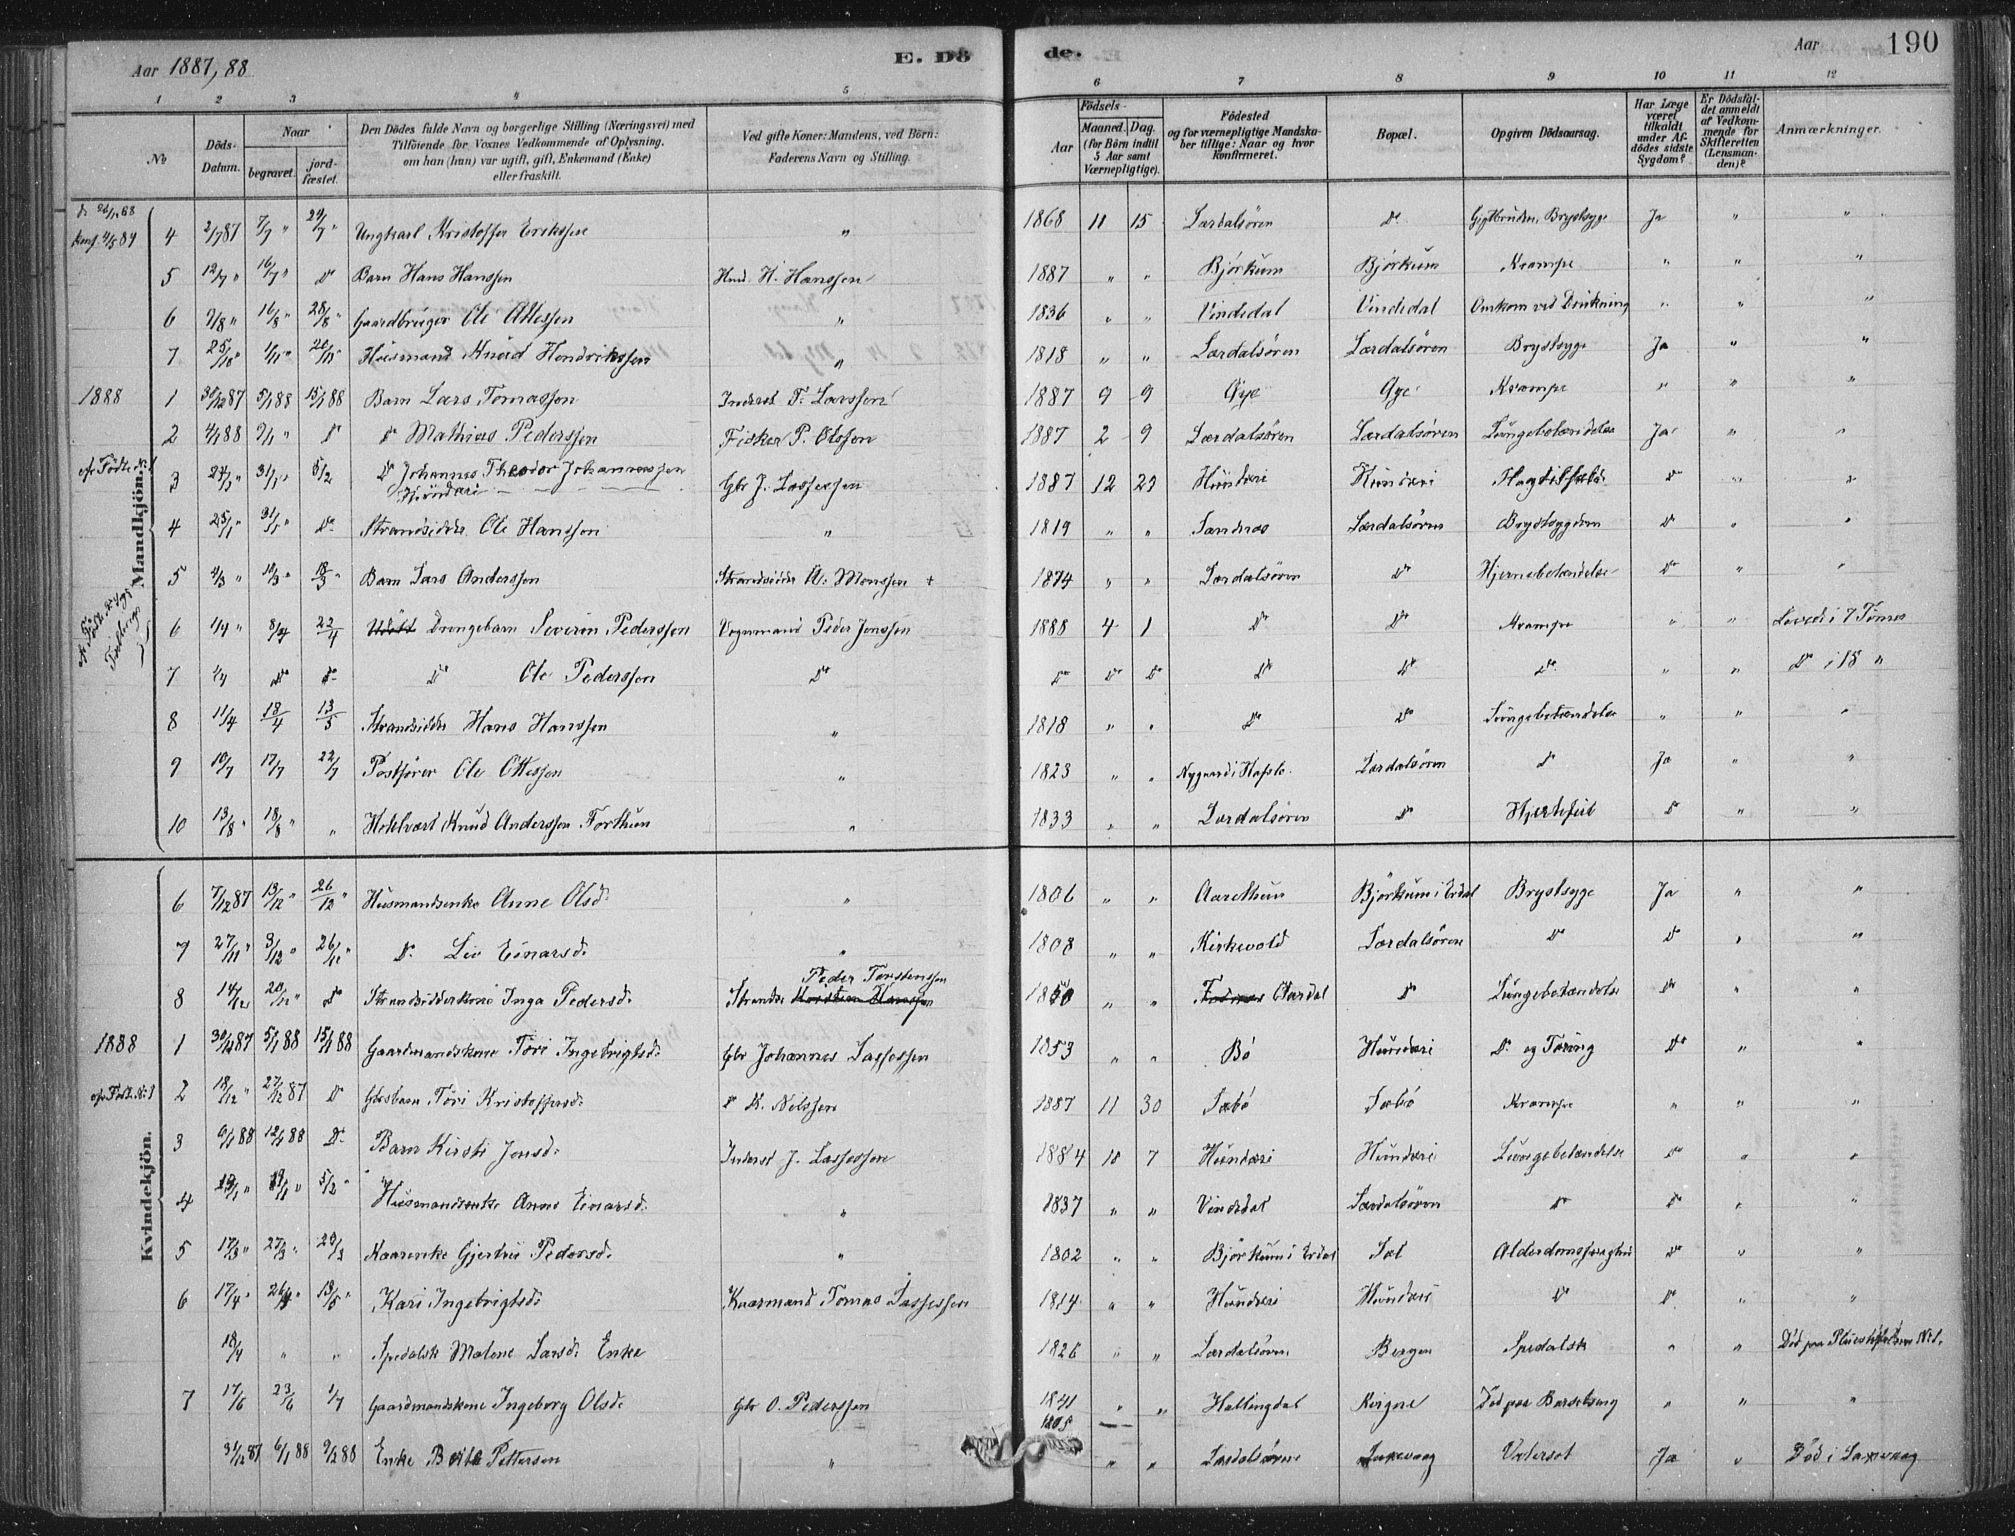 Aar 1887, 88
E. Dö
de.
Aar
190
1 2 3 4 5 6 7 8 9 10 11 12
No
Döds-Datum.
Naar
begravet.
jord-fæstet.
Den Dödes fulde Navn og borgerlige Stilling (Næringsvei) med
Tilföiende for Voxnes Vedkommende af Oplysning.
om han (hun) var ugift, gift, Enkemand (Enke)
eller fraskilt.
Ved gifte Koner: Mandens, ved Börn:
Faderens Navn og Stilling.
Födsels-
Aar
Maaned. Dag.
(for Börn indtil
5 Aar samt
Værnepligtige).
Födested
og for værnepligtige Mandska-
ber tillige: Naar og hvor
konfirmeret.
Bopæl.
Opgiven Dödsaarsag.
Har Læge
været
tilkaldt
under Af-
dödes sidste
Sygdom?
Er Dödsfal-
det anmeldt
af Vedkom-
mende for
Skifteretten
(Lensman-
den)?
Anmærkninger.
Mandkjön.
4 2/7 87 7/7 " 24/7 " Ungkarl Kristoffer Erikssen " 1868 11 15 Lærdalsören Do Brystsyge Ja " "
5 12/7 " 16/7 " Do Barn Hans Hanssen Hmd. H. Hanssen 1887 " " Björkum Björkum Krampe " " "
6 7/8 " 16/8 " 28/8 " Gaardbruger Ole Ottessen " 1836 " " Vindedal Vindedal Omkom ved Drukning " " "
7 25/10 " 1/11 " 20/11 " Husmand Knud Hendrikssen " 1818 " " Lærdalsören Lærdalsören Brystsyge Ja " "
1888 1 30/12 87 5/1 88 15/1 88 Barn Lars Tomassen Inderst T. Larssen 1887 9 9 Øye Øye Krampe " " "
2 4/1 88 9/1 " Do Do Mathias Pederssen Fisker P. Olssen 1887 2 9 Lærdalsören Lærdalsören Lungebetændelse Ja " "
3 24/1 " 31/1 " 5/2 Do Johannes Theodor Johannessen
Hunderi Gbr J. Lassessen 1887 12 23 Hunderi Hunderi Do " "
4 25/1 " 31/1 " Do Strandsidder Ole Hanssen " 1819 " " Sandnes Lærdalsören Brystsygdom Do " "
5 4/3 " 10/3 " 18/3 " Barn Lars Anderssen Strandsidder A. Monssen + 1874 " " Lærdalsören Do Hjernebetændelse Do " "
6 1/4 " 8/4 22/4 Udöbt Drengebarn Severin Pederssen Vognmand Peder Jonssen 1888 4 1 Do Do Krampe " " Levede i 7 Timer
7 2/4 Do Do Do Ole Pederssen Do Do Do Do Do Do Do " " Do i 18 "
8 11/4 18/4 13/5 Strandsidder Hans Hanssen " 1818 " " Do Do Lungebetændelse " " "
9 10/7 17/7 22/7 Postförer Ole Ottessen " 1823 " " Nygaard i Hafslo. Lærdalsören Do Ja " "
10 13/8 " 18/8 " " Hotelvært Knud Anderssen Forthun " 1833 " " Lærdalsören Do Hjertefeil Do " "
Kvindekjön.
6 7/12 87 13/12 " 26/12 " Husmandsenke Anne Olsd: " 1806 " " Aarethun Björkum i Erdal Brystsyge Ja " "
7 27/11 " 3/12 " 26/12 " Do Liv Einarsd: " 1808 " " Kirkevold Lærdalsören Do Do " "
8 14/12 20/12 " Do Strandsidderkone Inga Pedersd: Strands: Peder Torstenssen 1850 " " Aardal Do Lungebetændelse Do " "
1888 1 30/12 87 5/1 88 15/1 88 Gaardmandskone Töri Ingebrigtsd: Gbr Johannes Lassessen 1853 " " Bö Hunderi Do og Tæring Do " "
2 18/12 " 27/12 87 Do Gbrsbarn Töri Kristoffersd: Do K. Nilssen 1887 11 30 Sæbö Sæbö Krampe " " "
3 6/1 88 12/1 88 Do Barn Kirsti Jonsd: Inderst J. Lassessen 1884 10 7 Hunderi Hunderi Lungebetændelse Do " "
4 13/1 " 19/1 " 5/2 " Husmandsenke Anne Einarsd: " 1837 " " Vindedal Lærdalsören Do Do " "
5 17/3 " 27/3 " 29/3 Kaarenke Gjertrü Pedersd: " 1802 " " Björkum i Erdal Sæl Alderdomssvaghed Do " "
6 17/4 " 26/4 " 13/5 " Kari Ingebrigtsd: Kaarmand Tomas Lassessen 1814 " " Hunderi Hunderi Do Do " "
18/4 " " Spedalsk Malene Larsd: Enke 1826 " " Lærdalsören Bergen Spedalsk " " Död paa Pleiestiftelsen No 1.
7 17/6 23/6 1/7 Gaardmandskone Ingeborg Olsd: Gbr O. Pederssen 1841 " " Hallingdal Död paa Barselseng " " "
31/12 87 6/1 88 9/2 88 Enke Pettersen " 1805 " " Lærdalsören Laxevaag Ja " Död i Laxevaag